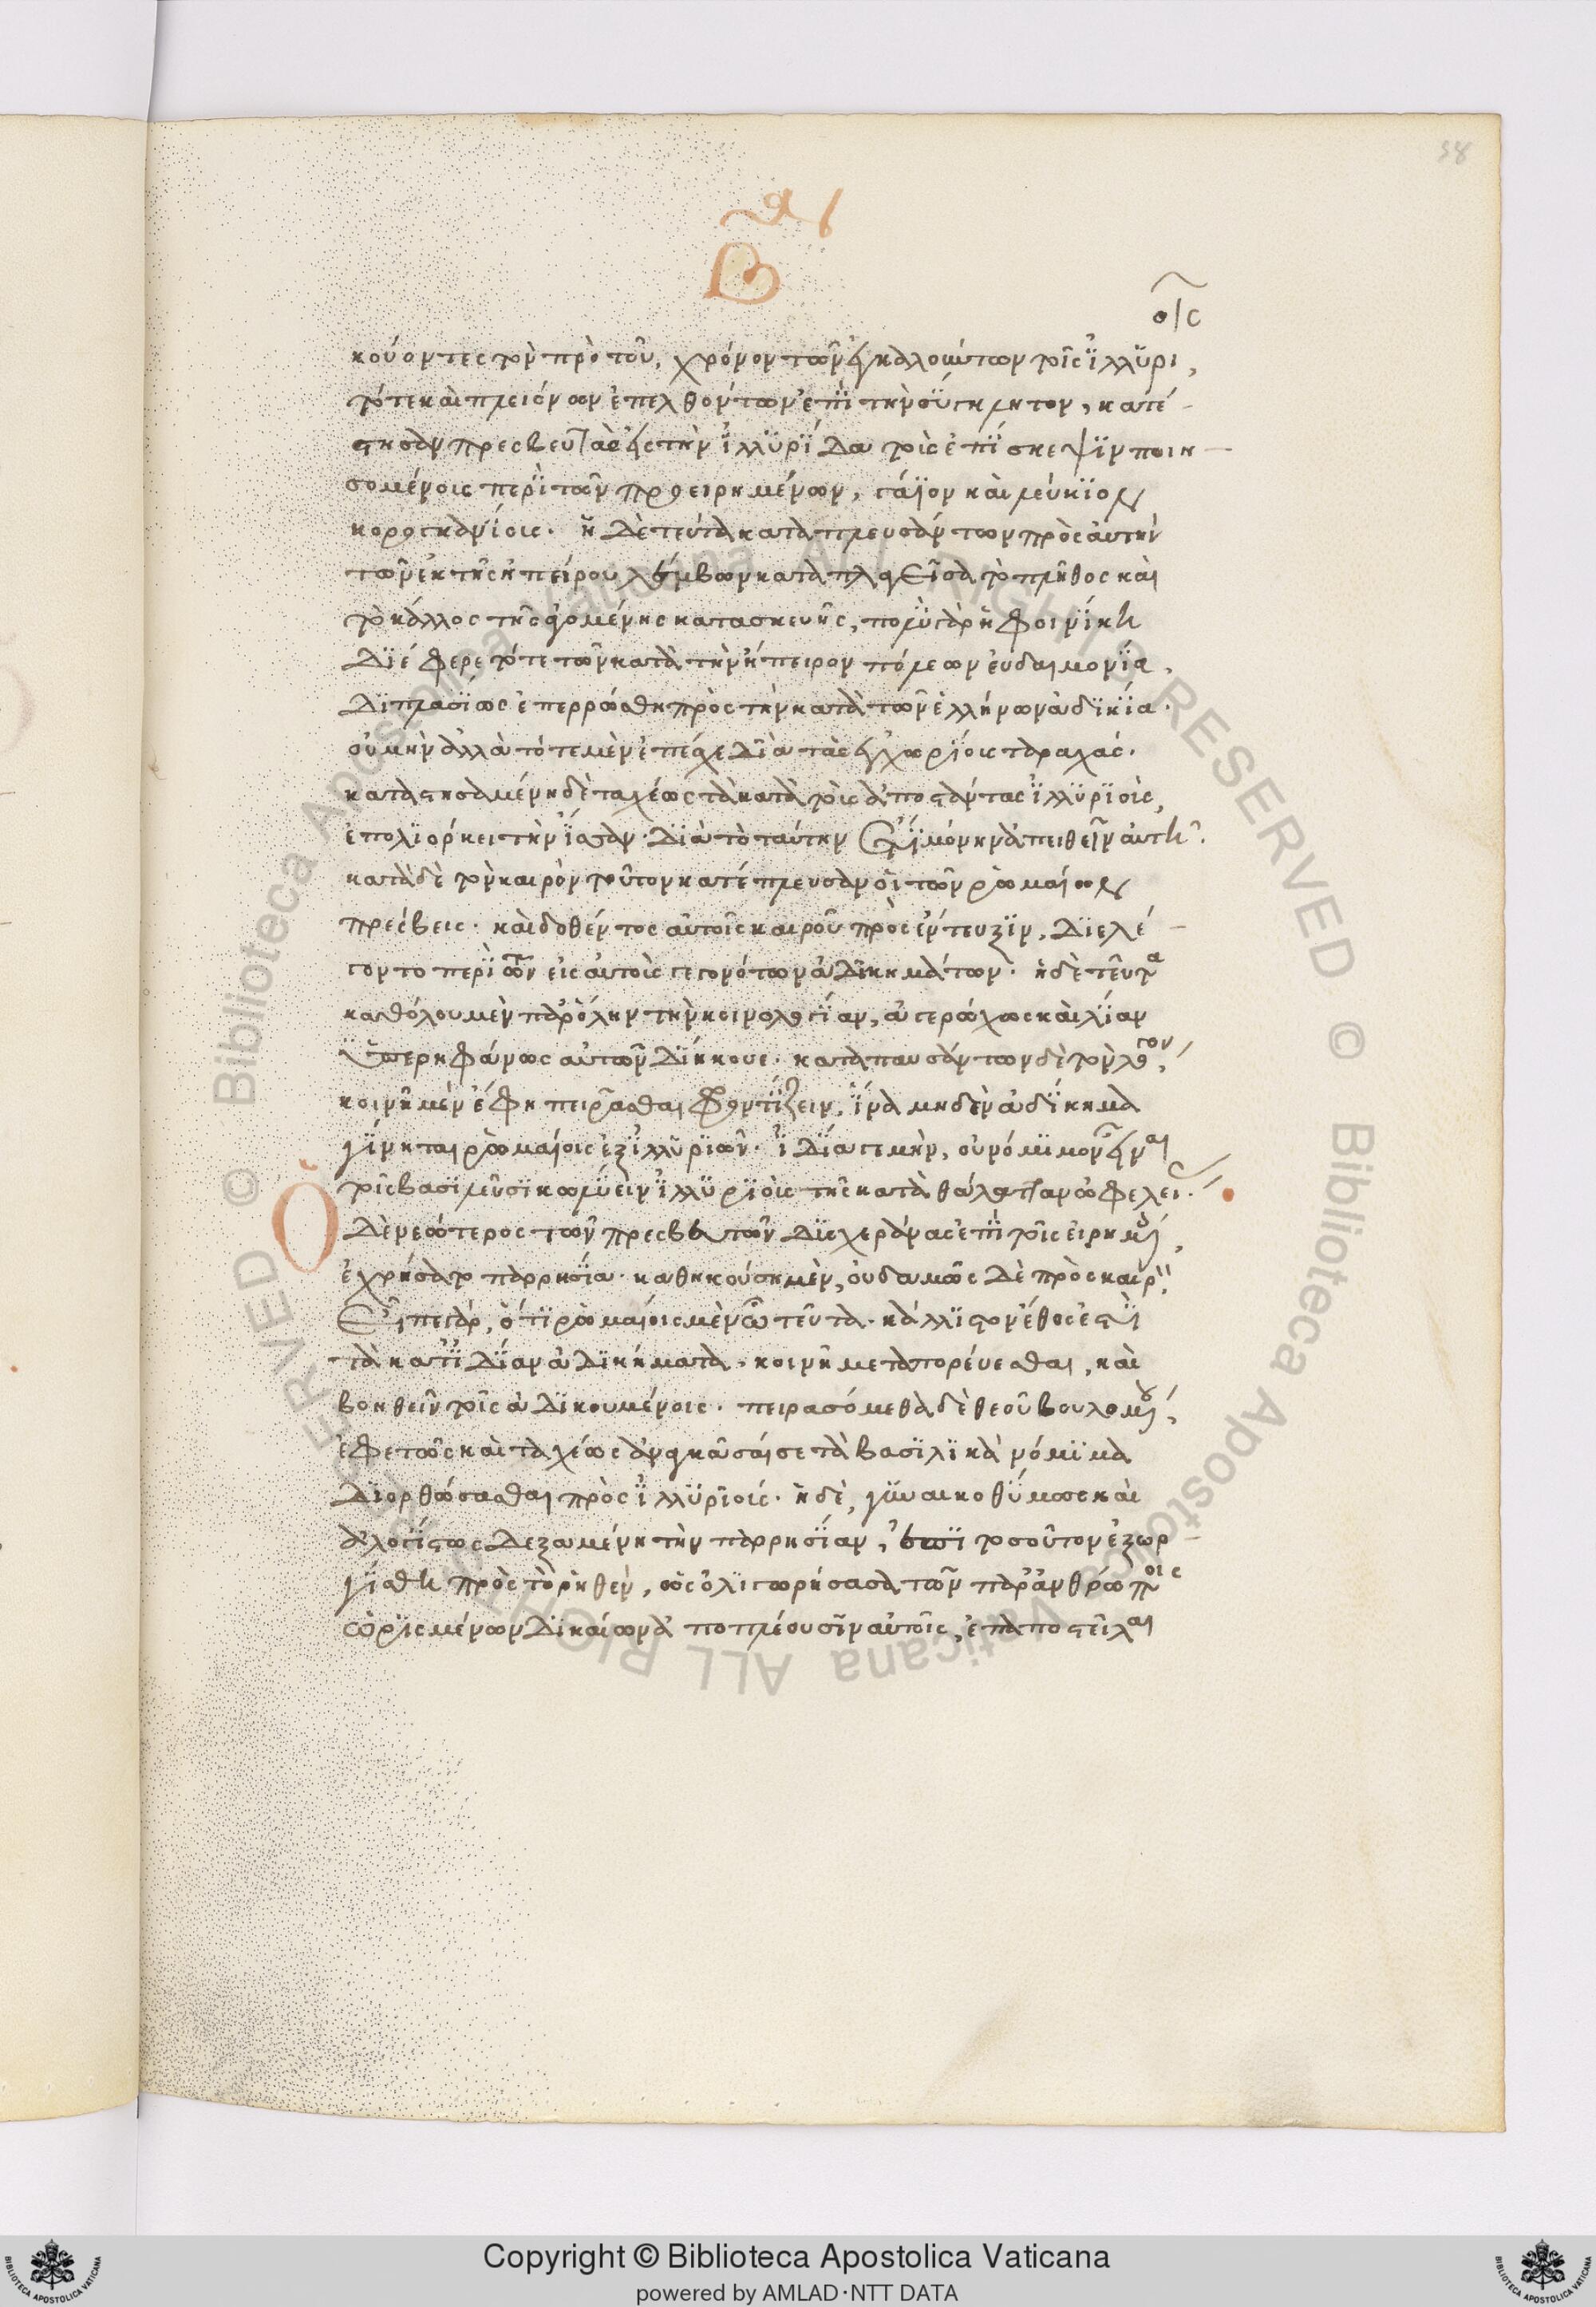 58
Β
οις
κούοντες τὸν πρὸ τοῦ, χρόνον τῶν ἐγκαλούντων τοῖς ἰλλυρι,
τότε καὶ πλειόνων ἐπελθόντων ἐπὶ τὴν σύγκλητον, κατέ-
στησαν πρεσβευτὰς εἰς τὴν ἰλλυρίδα τοὺς ἐπίσκεψιν ποιη-
σομένους περὶ τῶν προειρημένων, γάϊον καὶ λεύκιον
κορογκανίους. ἡ δὲ τεύτα καταπλευσάντων πρὸς αὐτὴν
τῶν ἐκ τῆς ἠπείρου λέμβων καταπλαγεῖσα τὸ πλῆθος καὶ
τὸ κάλλος τῆς ἀγομένης κατασκευῆς, πολὺ γὰρ ἡ φοινίκη
διέφερε τότε τῶν κατὰ τὴν ἤπειρον πόλεων εὐδαιμονία.
διπλασίως ἐπερρώσθη πρὸς τὴν κατὰ τῶν ἑλλήνων ἀδικία.
οὐ μὴν ἀλλὰ τότε μὲν ἐπέσχε διὰ τὰς ἐγχωρίους ταραχάς.
καταστησαμένη δὲ ταχέως τὰ κατὰ τοὺς ἀποστάντας ἰλλυριοὺς,
ἐπολιόρκει τὴν ἴσσαν. διὰ τὸ ταύτην ἔτι μόνην ἀπειθεῖν αὐτῇ.
κατὰ δὲ τὸν καιρὸν τοῦτον κατέπλευσαν οἱ τῶν ῥωμαίων
πρέσβεις. καὶ δοθέντος αὐτοῖς καιροῦ πρὸς ἔντευξιν, διελέ-
γοντο περὶ τῶν εἰς αὐτοὺς γεγονότων ἀδικημάτων. ἡ δὲ τεῦτα
καθόλου μὲν παρ' ὅλην τὴν κοινολογίαν, ἀγερώχως καὶ λίαν
ὑπερηφάνως αὐτῶν διήκουε. καταπαυσάντων δὲ τὸν λόγον,
κοινῇ μὲν ἔφη πειρᾶσθαι φροντίζειν, ἵνα μηδὲν ἀδίκημα
γίνηται ῥωμαίοις ἐξ ἰλλυριῶν. ἰδίᾳ γε μὴν, οὐ νόμιμον εἶναι
τοῖς βασιλεῦσι κωλύειν ἰλλυριοῖς τῆς κατὰ θάλατταν ὠφελεί.
Ὁ δὲ νεώτερος τῶν πρεσβευτῶν δυσχεράνας ἐπὶ τοῖς εἰρημέ,
ἐχρήσατο παρρησίᾳ. καθηκούσῃ μὲν, οὐδαμῶς δὲ πρὸς καιρό.
εἶπε γὰρ, ὅτι ῥωμαίοις μὲν ὦ τεῦτα. κάλλιστον ἔθος ἐστὶ
τὰ κατ' ἰδίαν ἀδικήματα. κοινῇ μεταπορεύεσθαι, καὶ
βοηθεῖν τοῖς ἀδικουμένοις. πειρασόμεθα δὲ θεοῦ βουλομέ,
ἐφετῶς καὶ ταχέως ἀναγκᾶσαί σε τὰ βασιλικὰ νόμιμα
διορθώσασθαι πρὸς ἰλλυριούς. ἡ δὲ, γυναικοθύμως καὶ
ἀλογίστως δεξαμένη τὴν παρρησίαν, ἐπὶ τοσοῦτον ἐξωρ-
γίσθη πρὸς τὸ ῥηθὲν, ὡς ὀλιγωρήσασα τῶν παρ' ἀνθρώποις
ὡρισμένων δικαίων ἀποπλέουσιν αὐτοῖς, ἐπαποστεῖλαι
Copyright © Biblioteca Apostolica Vaticana
powered by AMLAD·NTT DATA